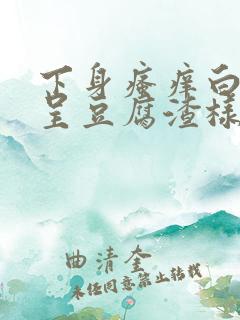 下身瘙痒白
呈豆腐渣样
曲清奎
未经同意禁止转载